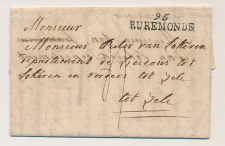 95
RUREMONDE
Monsieur
Monsieur Pieter van Lokeren
Departement de Lescous tot
Lokeren en verders tot Zele
tot Zele